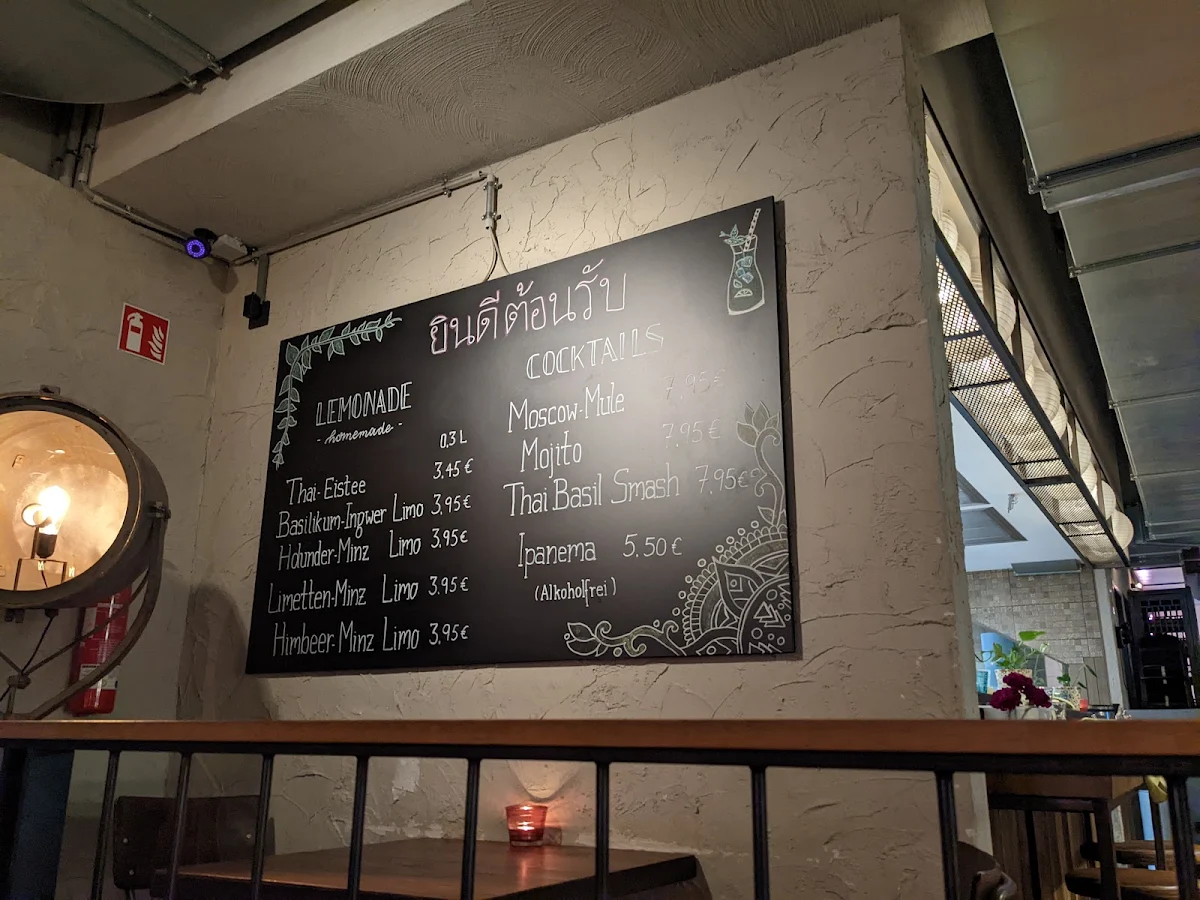 ยินดีต้อนรับ
LEMONADE
- homemade -
0,3 L
Thai-Eistee 3,45 €
Basilikum-Ingwer Limo 3,95 €
Holunder-Minz Limo 3,95 €
Limetten-Minz Limo 3,95 €
Himbeer-Minz Limo 3,95 €
COCKTAILS
Moscow-Mule 7,95 €
Mojito 7,95 €
Thai Basil Smash 7,95 €
Ipanema 5.50 €
(Alkoholfrei)